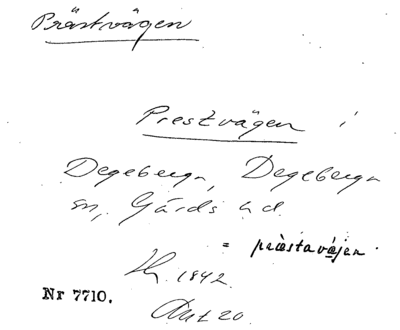 Prästvägen
Prestvägen i
Degeberga, Degeberga
sn, Gärds hd.
= prästaväjen.
1842.
Nr 7710.
Akt 20